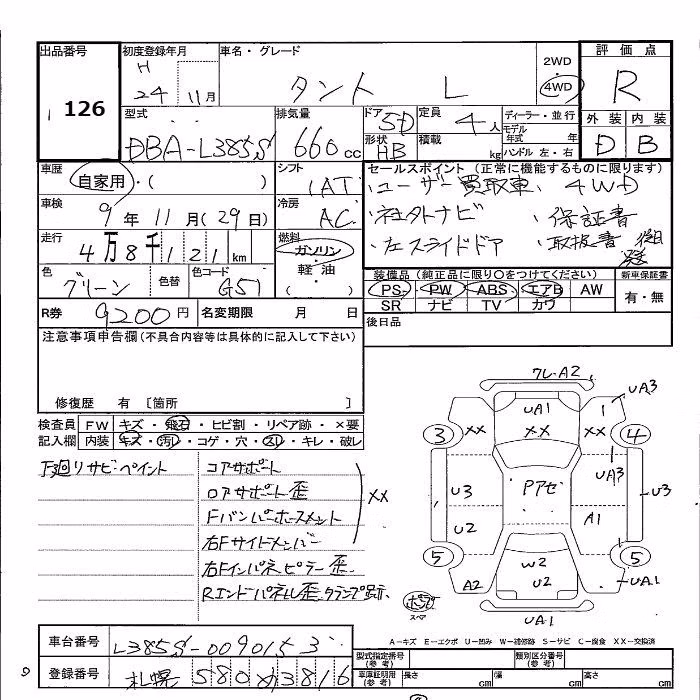 出品番号 初度登録年月 車名・グレード 2WD 評価点
126 H 24 11月 タント L 4WD R
外装 内装
D B
型式 排気量 ドア 5D 定員 4人 ディーラー・並行
DBA-L385S 660cc 形状 HB 積載 kg モデル年式 年
ハンドル 左・右
車歴 自家用・( ) シフト 1AT セールスポイント (正常に機能するものに限ります)
・ユーザー買取車 ・4WD
車検 9年11月(29日) 冷房 AC
・社外ナビ ・保証書
走行 4万8千121km 燃料 ガソリン・軽油・( )
・左スライドドア ・取扱書 後日発送
色 グリーン 色替 色コード G57
装備品 (純正品に限り○をつけてください) 新車保証書
PS PW ABS エアB AW 有・無
SR ナビ TV カワ
R券 9200円 名変期限 月 日 後日品
注意事項申告欄(不具合内容等は具体的に記入して下さい)
修復歴 有 [箇所 ]
検査員 FW キズ・飛石・ヒビ割・リペア跡・×要
記入欄 内装 キズ・汚れ・コゲ・穴・スレ・キレ・破レ
下廻リサビ・ペイント コアサポート
ロアサポート歪
Fバンパーホースメント
右Fサイドメンバー
右Fインパネピラー歪
Rエンドパネル歪.タランプ跡
XX
フレ・A2
UA1 1 UA3
XX XX XX
3 4
UA3
U3 Pアゼ U3
U2 A1
5 5
W2
A2 U2 UA1
スペア
UA1
A-キズ E-エクボ U-凹み W-補修跡 S-サビ C-腐食 XX-交換済
車台番号 L385S-0090153
型式指定番号(参考) 類別区分番号(参考)
登録番号 札幌 580 め 3816
車庫証明用(参考) 長さ cm 幅 cm 高さ cm